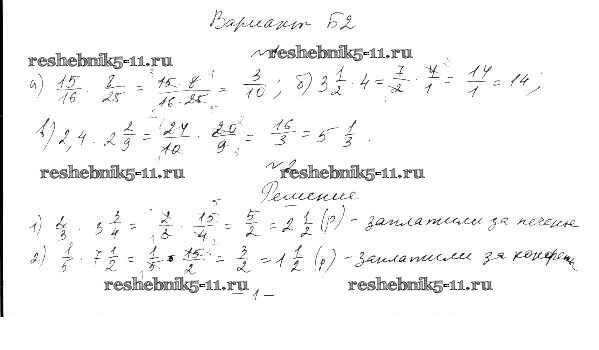 Вариант Б2
№1
reshebnik5-11.ru reshebnik5-11.ru
а) 15/16 · 8/25 = 15·8/16·25 = 3/10; б) 3 1/2 · 4 = 7/2 · 4/1 = 14/1 = 14;
в) 2,4 · 2 2/9 = 24/10 · 20/9 = 16/3 = 5 1/3.
№2
reshebnik5-11.ru reshebnik5-11.ru
Решение
1) 2/3 · 3 3/4 = 2/3 · 15/4 = 5/2 = 2 1/2 (р) - заплатили за печенье
2) 1/5 · 7 1/2 = 1/5 · 15/2 = 3/2 = 1 1/2 (р) - заплатили за конфеты
reshebnik5-11.ru reshebnik5-11.ru
- 1 -